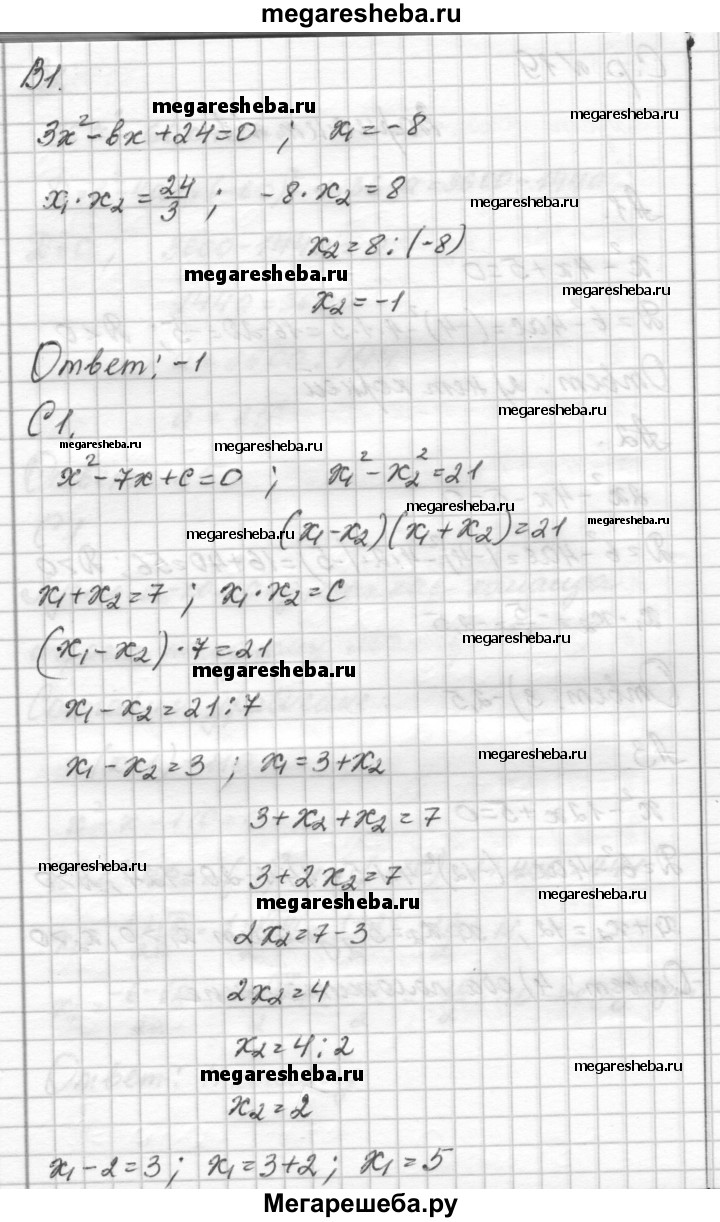 megaresheba.ru
В1.
megaresheba.ru
megaresheba.ru
3x² - вx + 24 = 0 ; x₁ = -8
x₁ · x₂ = 24/3 ; -8 · x₂ = 8
megaresheba.ru
x₂ = 8 : (-8)
megaresheba.ru
x₂ = -1
megaresheba.ru
Ответ: -1
megaresheba.ru
С1.
megaresheba.ru
megaresheba.ru
x² - 7x + c = 0 ; x₁² - x₂² = 21
megaresheba.ru
megaresheba.ru
(x₁ - x₂)(x₁ + x₂) = 21
megaresheba.ru
x₁ + x₂ = 7 ; x₁ · x₂ = c
megaresheba.ru
(x₁ - x₂) · 7 = 21
megaresheba.ru
x₁ - x₂ = 21 : 7
megaresheba.ru
x₁ - x₂ = 3 ; x₁ = 3 + x₂
3 + x₂ + x₂ = 7
megaresheba.ru
3 + 2x₂ = 7
megaresheba.ru
megaresheba.ru
2x₂ = 7 - 3
2x₂ = 4
x₂ = 4 : 2
megaresheba.ru
megaresheba.ru
x₂ = 2
x₁ - 2 = 3 ; x₁ = 3 + 2 ; x₁ = 5
Мегарешеба.ру